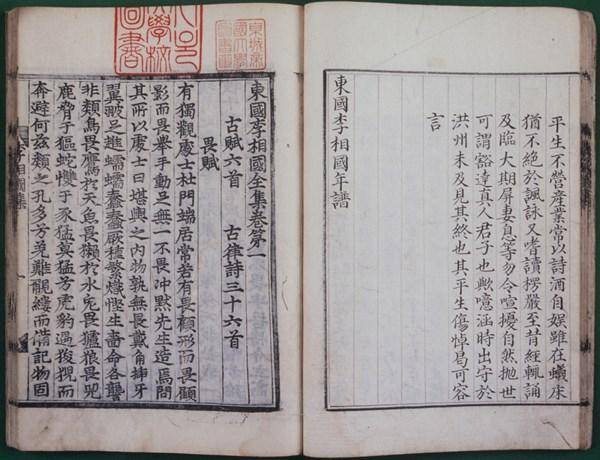 平生不營産業常以詩酒自娛雖在蟻床
猶不絶於諷詠又嗜讀楞嚴至背經輒誦
及臨大期屏妻息等勿令喧擾自然抛世
可謂豁達真人君子也歟噫涵時出守於
洪州未及見其終也其平生傷悼曷可容
言
東國李相國年譜
東國李相國全集卷第一
古賦六首 古律詩三十六首
畏賦
有獨觀處士杜門端居常若有畏顧形而畏顧
影而畏舉手動足無一不畏冲默先生造焉問
其所以處士曰堪輿之内物孰無畏戴角揷牙
翼翍足進蠕蠕蠢蠢厥種繁熾慳生嗇命各讋
非類鳥畏鷹於天魚畏獺於水兎畏獹狼畏兕
鹿脅于貙蛇懾于豕猛莫猛兮虎豹過狻猊而
奔避何玆類之孔多兮羌難覼縷而備記物固
李相國集
學校
圖書